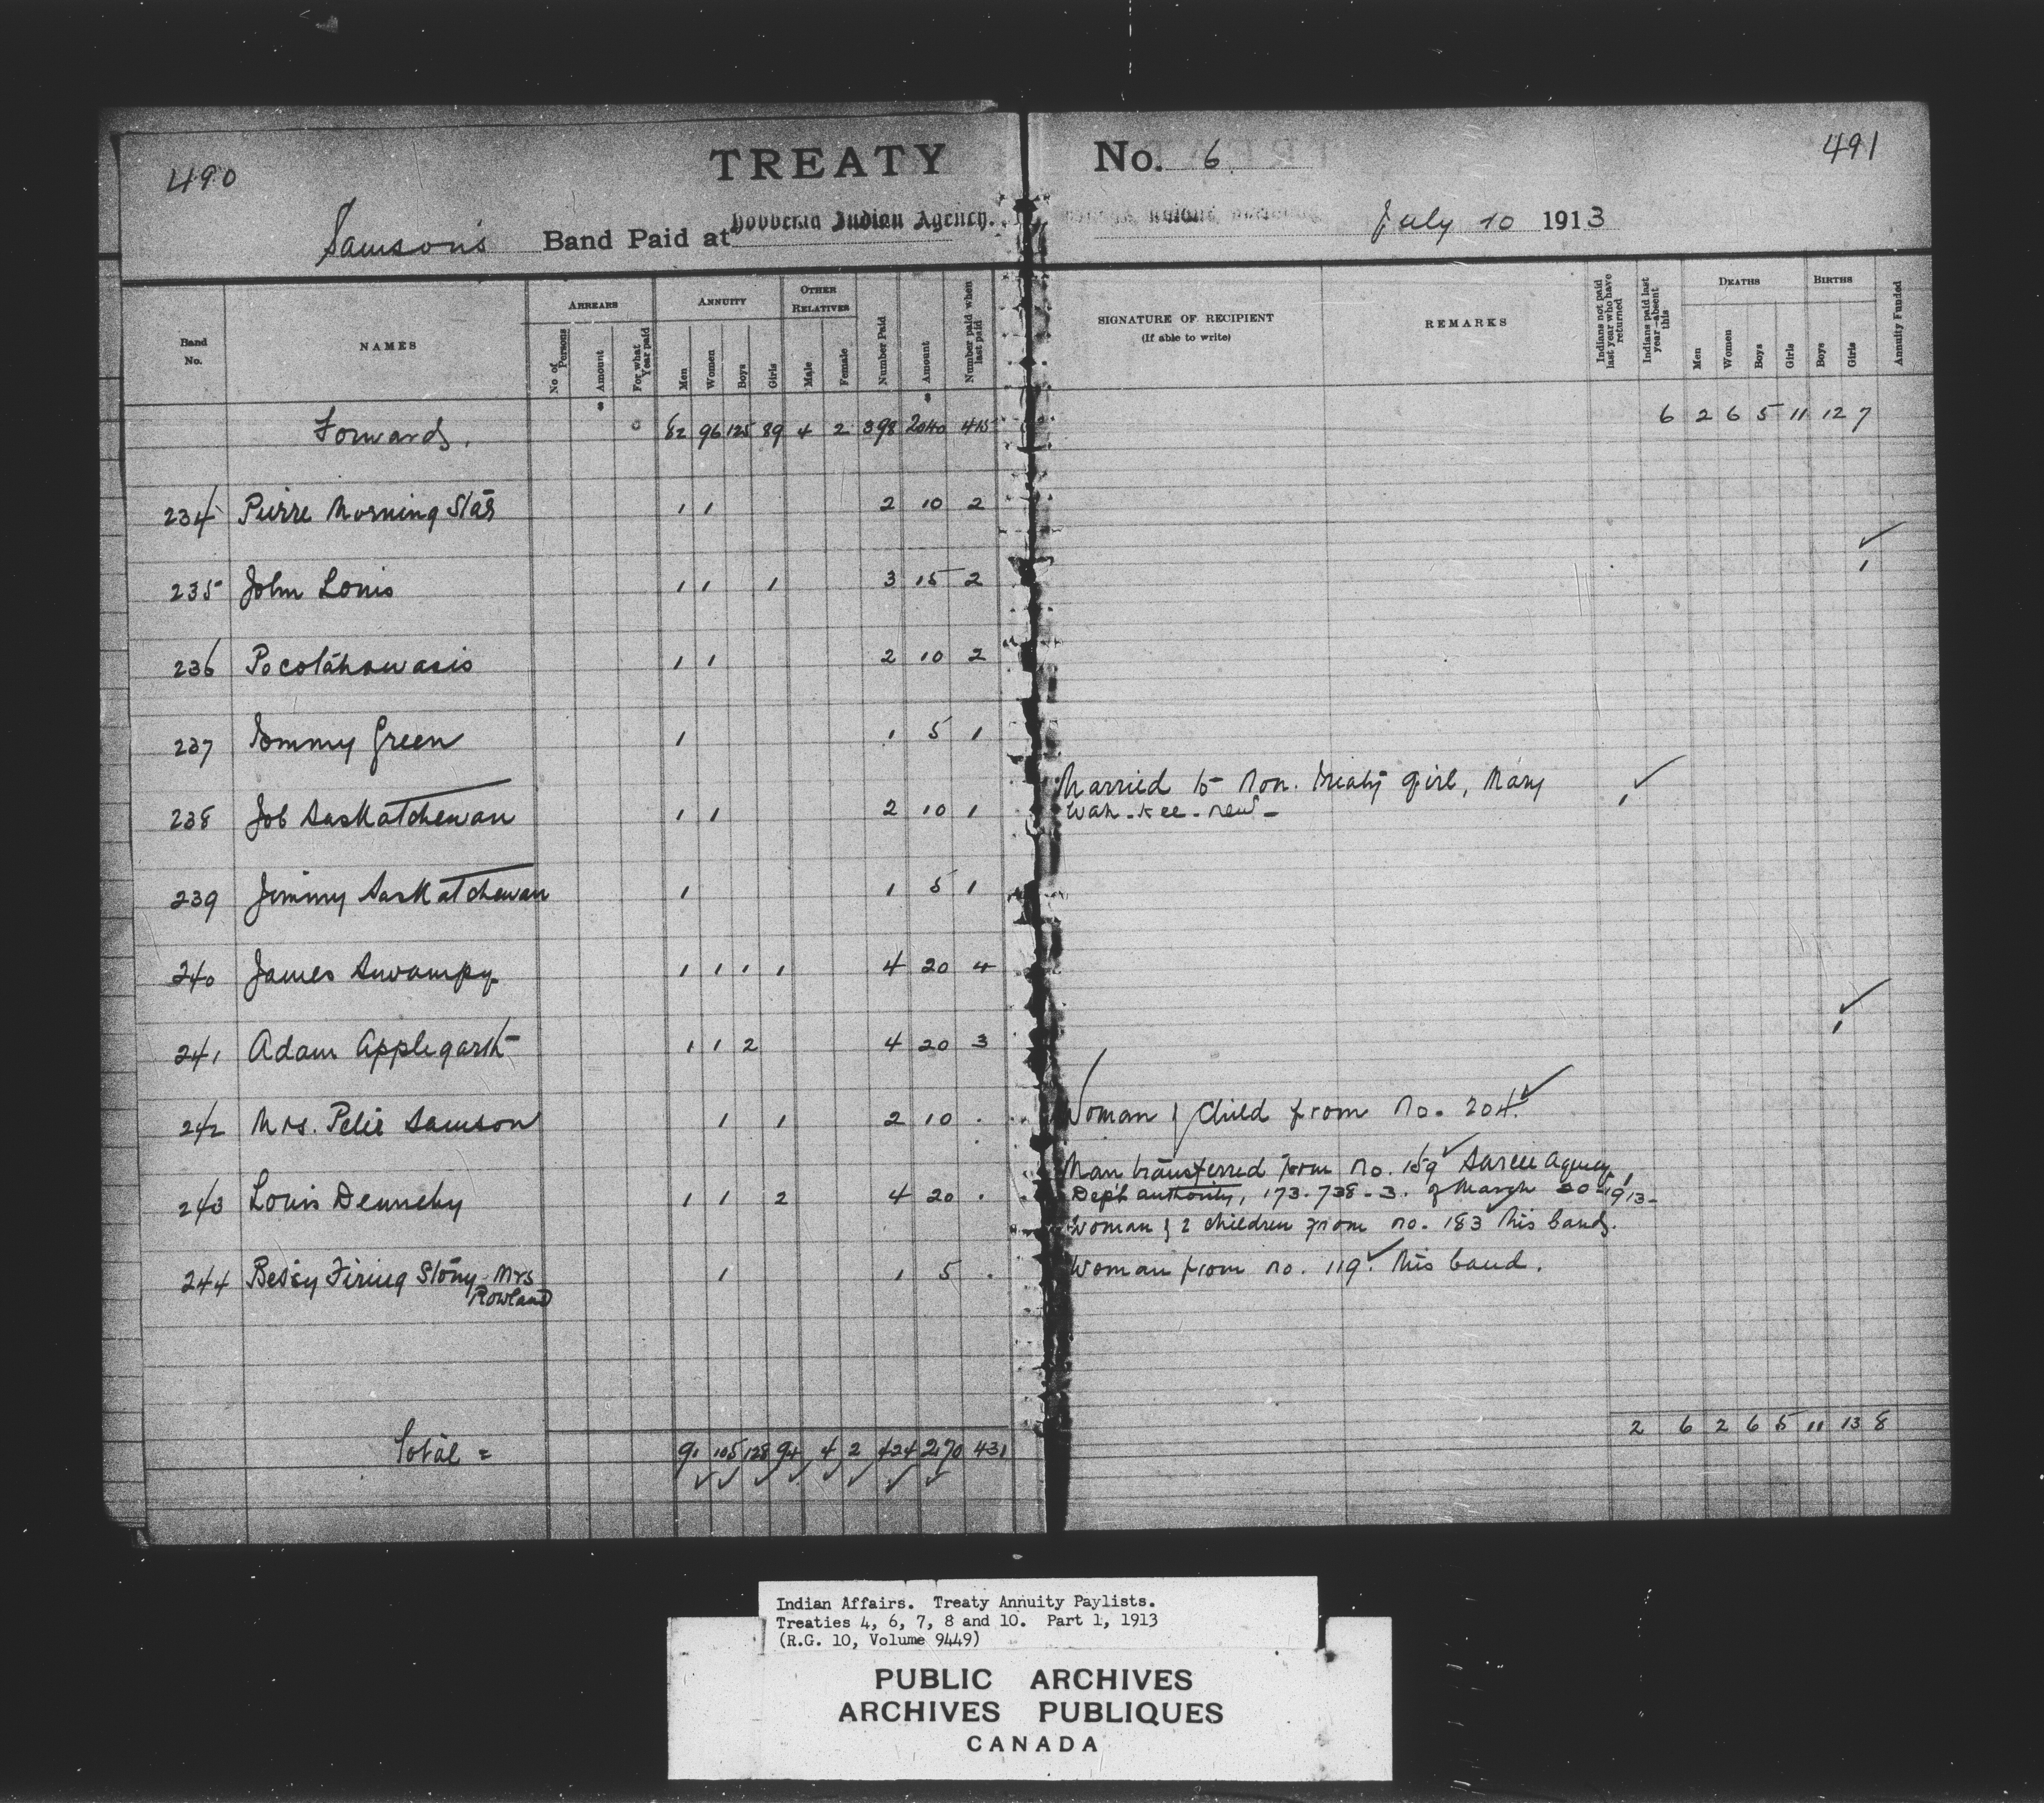 490
TREATY No. 6
491
Samson's Band Paid at Hobbema Indian Agency. July 10 1913
Band No. NAMES ARREARS ANNUITY OTHER RELATIVES
No. of Persons Amount For what Year paid Men Women Boys Girls Male Female Number Paid Amount Number paid when last paid
SIGNATURE OF RECIPIENT
(If able to write)
REMARKS
Indians not paid last year who have returned
Indians paid last year—absent this
DEATHS BIRTHS
Men Women Boys Girls Boys Girls Annuity Funded
$ $
Forwards. 82 96 125 89 4 2 398 2040 415 6 2 6 5 11 12 7
234 Pierre Morning Star 1 1 2 10 2
235 John Louis 1 1 1 3 15 2 1 ✓
236 Pocotahowasis 1 1 2 10 2
237 Tommy Green 1 1 5 1
238 Job Saskatchewan 1 1 2 10 1 Married to Non. treaty girl, Mary 1 ✓
Wah-kee-new-
239 Jimmy Saskatchewan 1 1 5 1
240 James Swampy 1 1 1 1 4 20 4
241 Adam Applegarth 1 1 2 4 20 3 1 ✓
242 Mrs. Peter Samson 1 1 2 10 . Woman & child from no. 204. ✓
243 Louis Dennehy 1 1 2 4 20 . Man transferred from no. 159 ✓ Sarcee Agency,
Dept authority, 173.738-3. of March 20-1913-
Woman & 2 children from no. 183 this band.
244 Betsy Firing Stony - Mrs 1 1 5 . Woman from no. 119 ✓ this band.
Rowland
Total = 91 105 128 94 4 2 424 2170 431 2 6 2 6 5 11 13 8
Indian Affairs. Treaty Annuity Paylists.
Treaties 4, 6, 7, 8 and 10. Part 1, 1913
(R.G. 10, Volume 9449)
PUBLIC ARCHIVES
ARCHIVES PUBLIQUES
CANADA